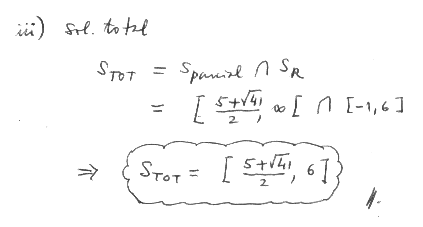 iii) sol. total
S_TOT = S_parcial ∩ S_R
= [ (5+√41)/2, ∞ [ ∩ [-1,6]
⇒ S_TOT = [ (5+√41)/2, 6 ]